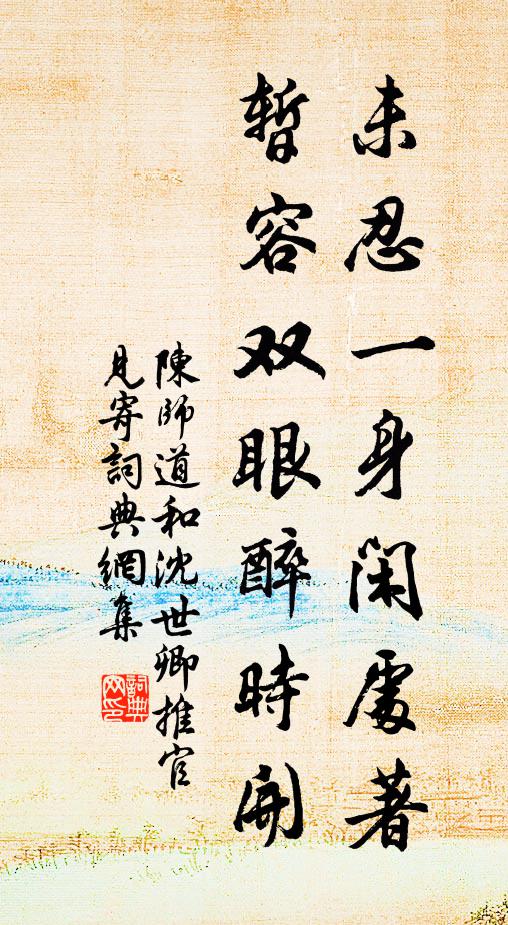 未忍一身閑處著
暫容双眼醉時開
陳師道和沈世卿推官
見寄詞典網集
詞典网印